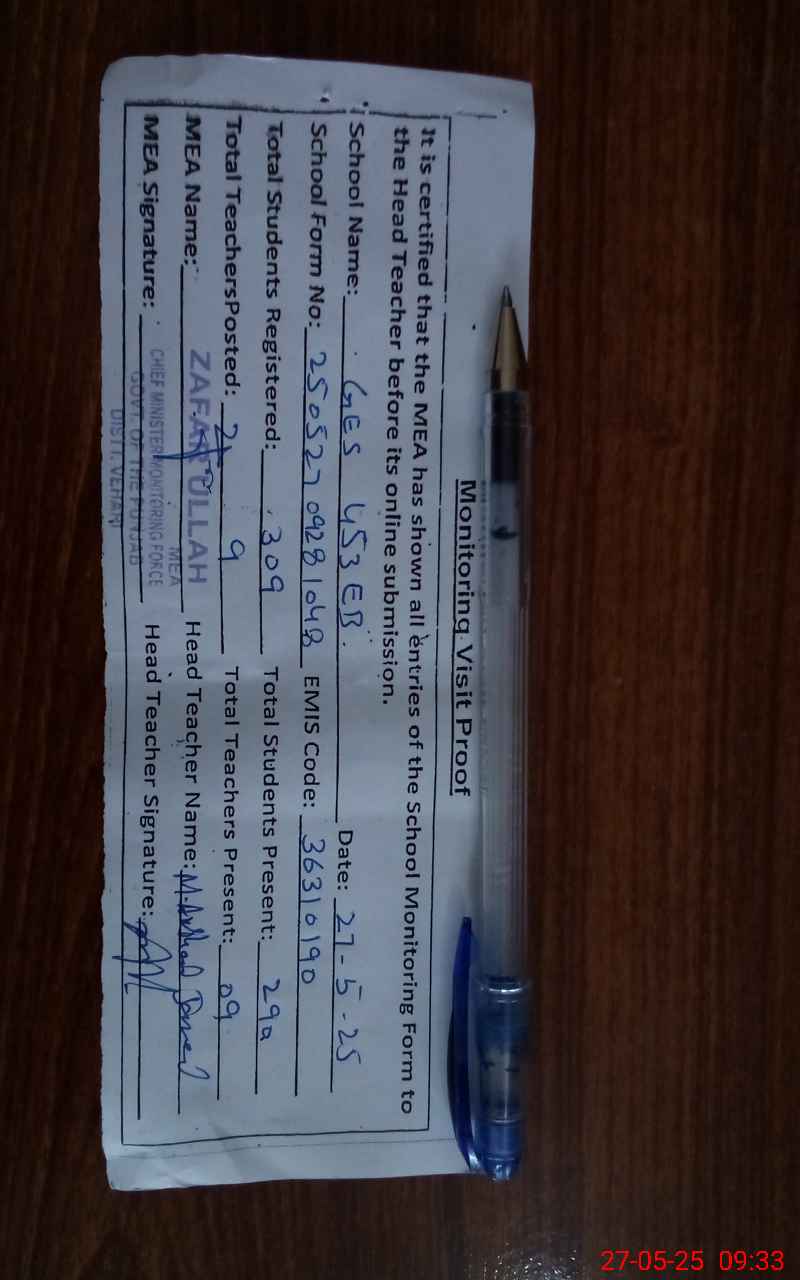 Monitoring Visit Proof
It is certified that the MEA has shown all entries of the School Monitoring Form to
the Head Teacher before its online submission.
School Name: GES 453 EB. Date: 27-5-25
School Form No: 25052709281048 EMIS Code: 36310190
Total Students Registered: 309 Total Students Present: 290
Total TeachersPosted: 9 Total Teachers Present: 09
MEA Name: ZAFAR ULLAH Head Teacher Name: M.
MEA
MEA Signature: Head Teacher Signature:
CHIEF MINISTER MONITORING FORCE
GOVT. OF THE PUNJAB
DISTT. VEHARI
27-05-25 09:33